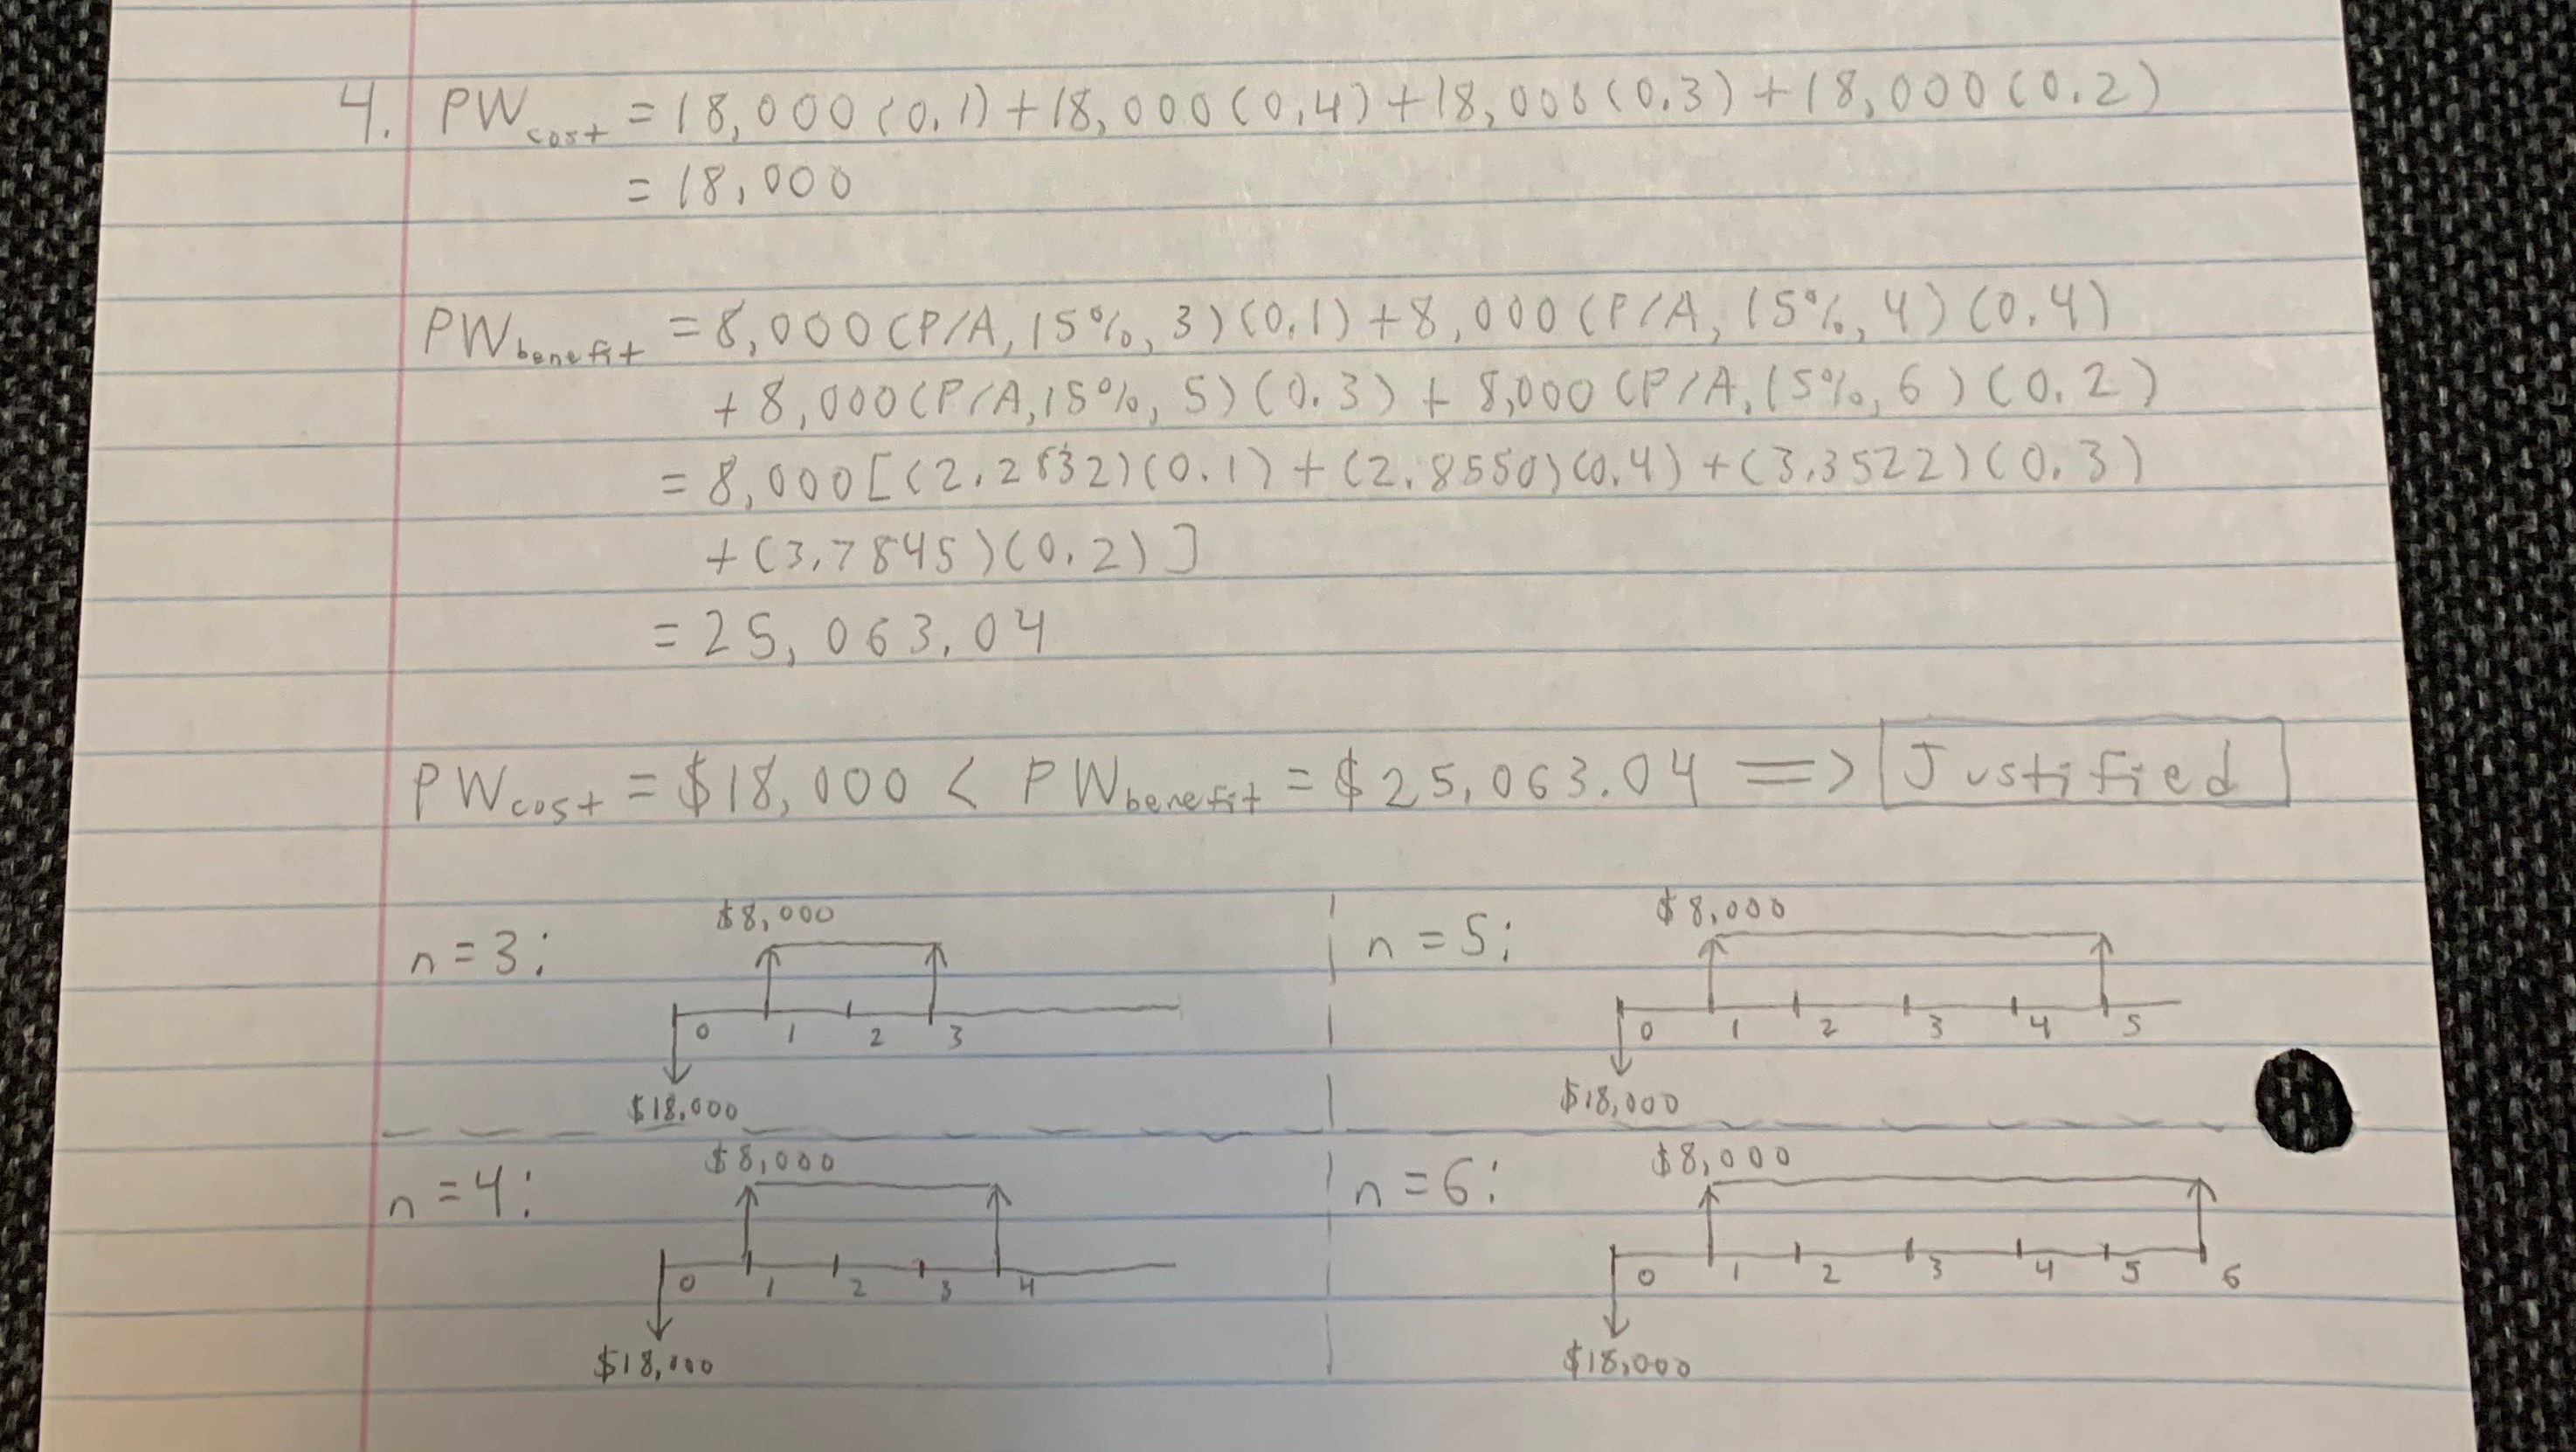 4. PWcost = 18,000(0.1)+18,000(0.4)+18,000(0.3)+18,000(0.2)
= 18,000
PWbenefit = 8,000(P/A,15%,3)(0.1)+8,000(P/A,15%,4)(0.4)
+8,000(P/A,15%,5)(0.3)+8,000(P/A,15%,6)(0.2)
= 8,000[(2.2832)(0.1)+(2.8550)(0.4)+(3.3522)(0.3)
+(3.7845)(0.2)]
= 25,063.04
PWcost = $18,000 < PWbenefit = $25,063.04 => Justified
n=3:
$8,000
0 1 2 3
$18,000
n=5:
$8,000
0 1 2 3 4 5
$18,000
n=4:
$8,000
0 1 2 3 4
$18,000
n=6:
$8,000
0 1 2 3 4 5 6
$18,000